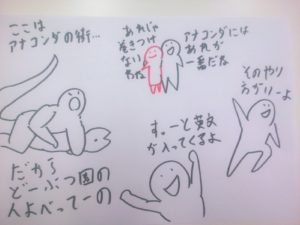 ここは
アナコンダの街…
あれじゃ
巻きつけ
ないわな
アナコンダには
あれが
一番だな
そのやり
方がいーよ
すぅーと英気
が入ってくるよ
だから
どーぶつ園の
人よべってーの